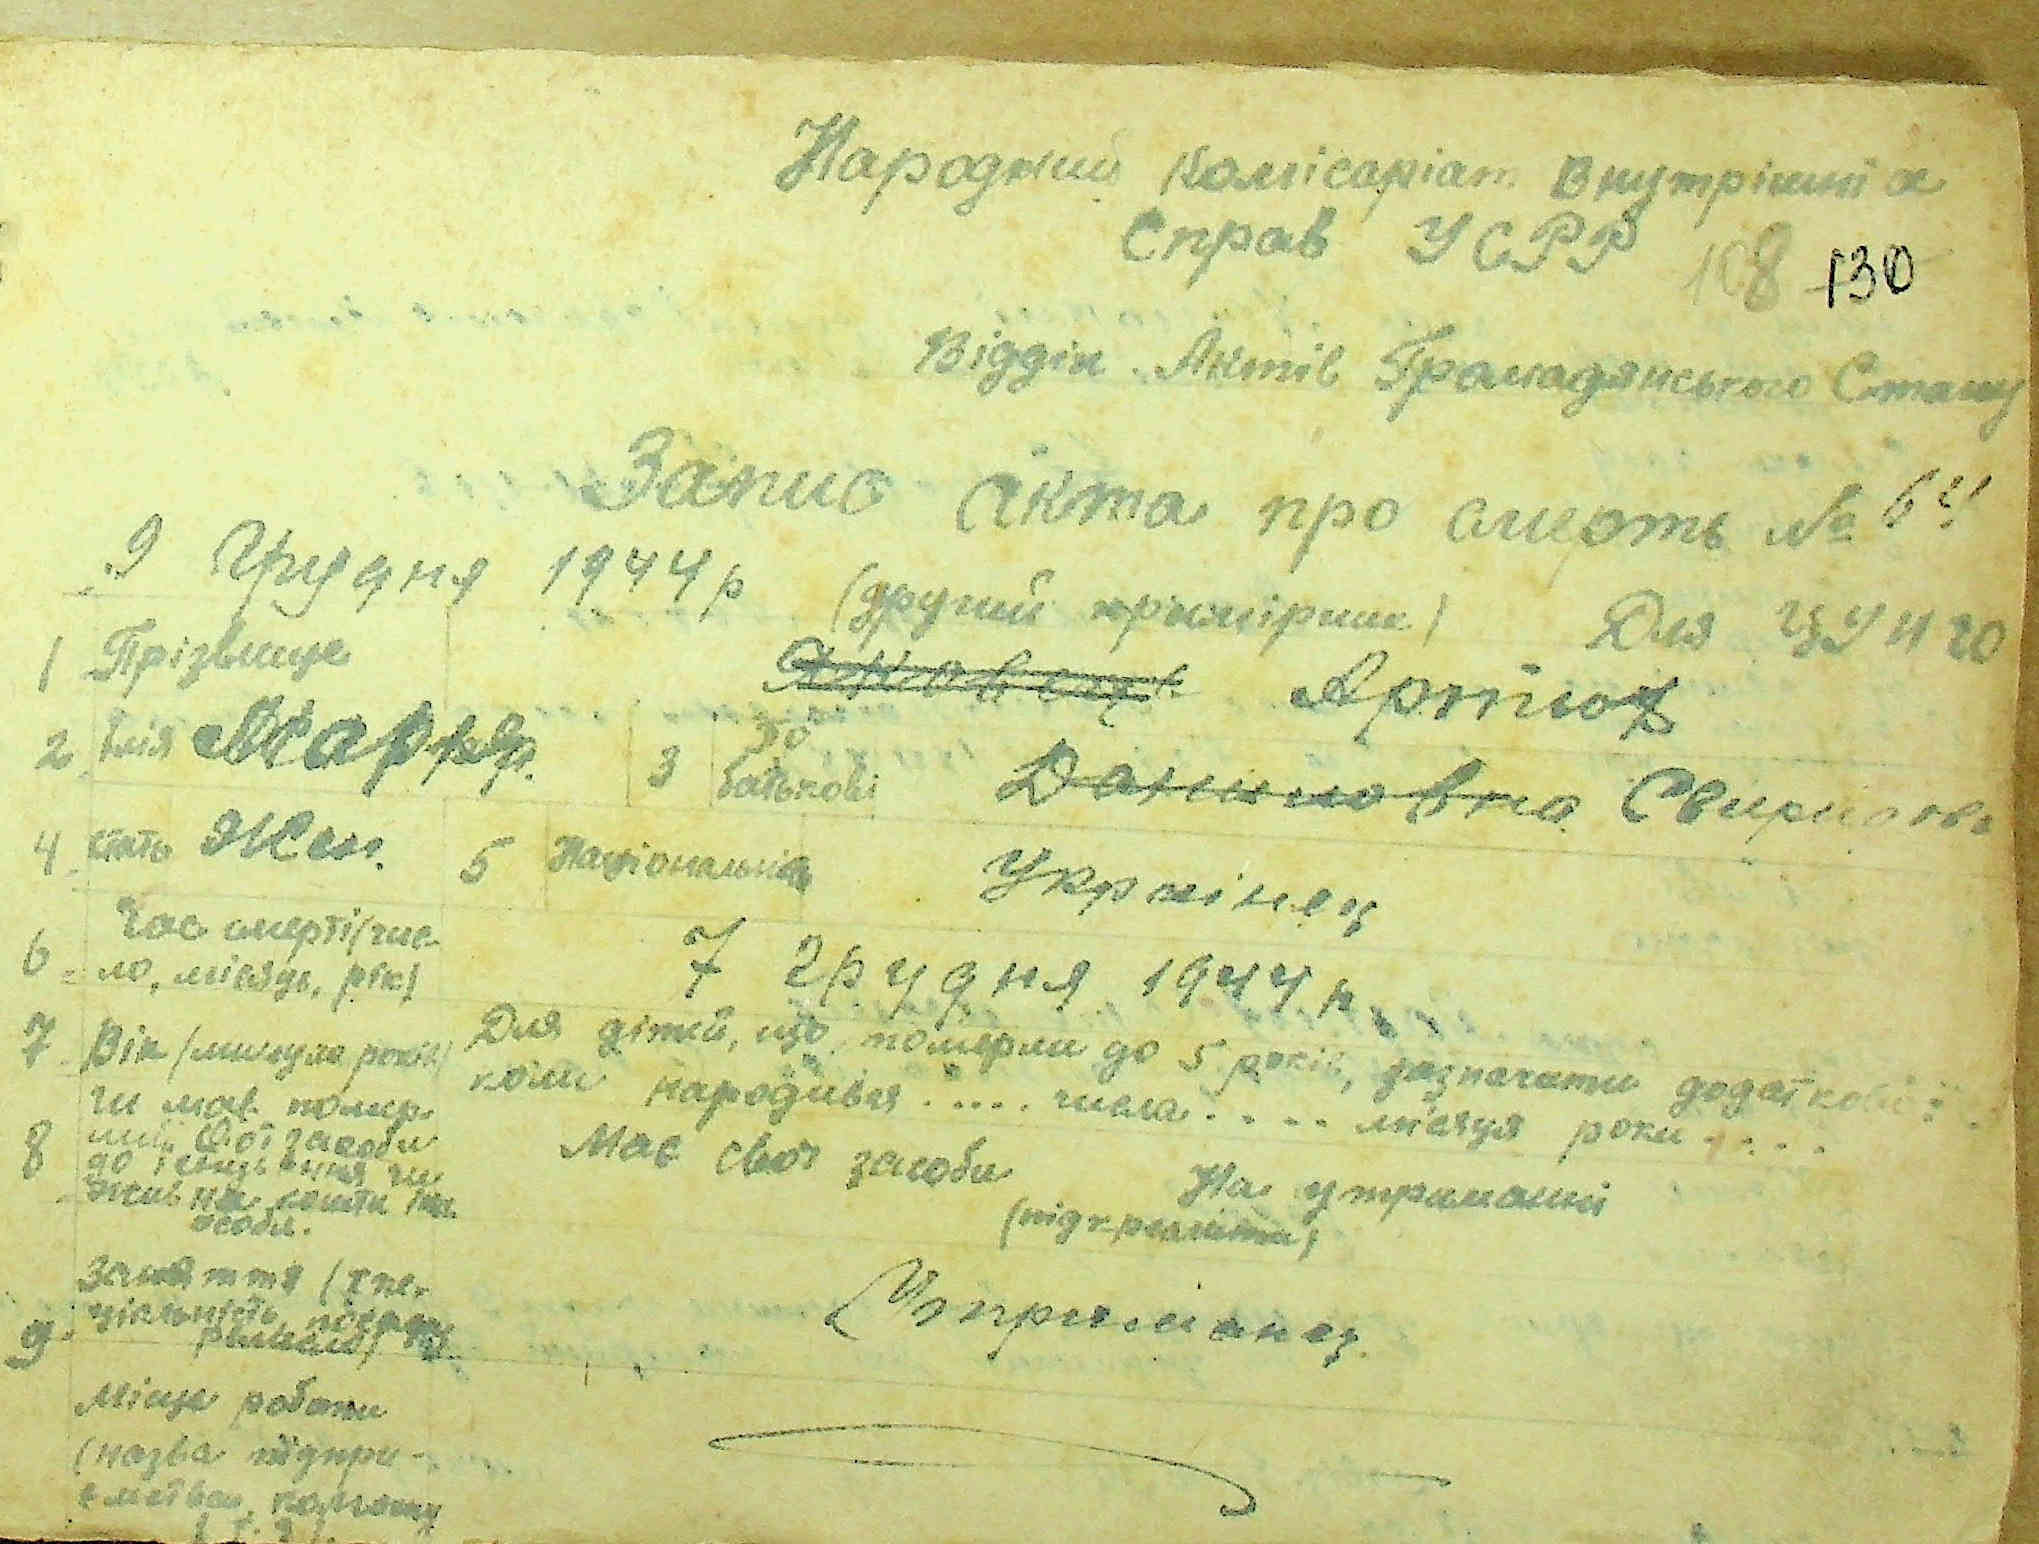 Народний Комісаріат Внутрішніх
Справ УСРР
108 130
Відділ Актів Громадянського Стану
Запис акта про смерть № 64
9 Грудня 1944 р (другий примірник) Для ЦУНГО
1 Прізвище Яковець Артюх
2 Імя Марфа 3 По батькові Даниловна Свиридовн
4 Стать Жен. 5 Національність Українец
6 Час смерті (чис-
ло, місяць, рік) 7 грудня 1944 р.
7 Вік (минуло років) Для дітей, що померли до 5 років, зазначати додатково:
коли народився ..... числа .... місяця року ....
8 чи мав помер-
ший свої засоби
до існування чи
жив на кошти ін.
особи. Має свої засоби На утриманні
(підкреслити)
9. Заняття (спе-
ціальність, посада,
Утриманец.
Місце роботи
(назва підпри-
ємства, колгоспу
і т. д.).